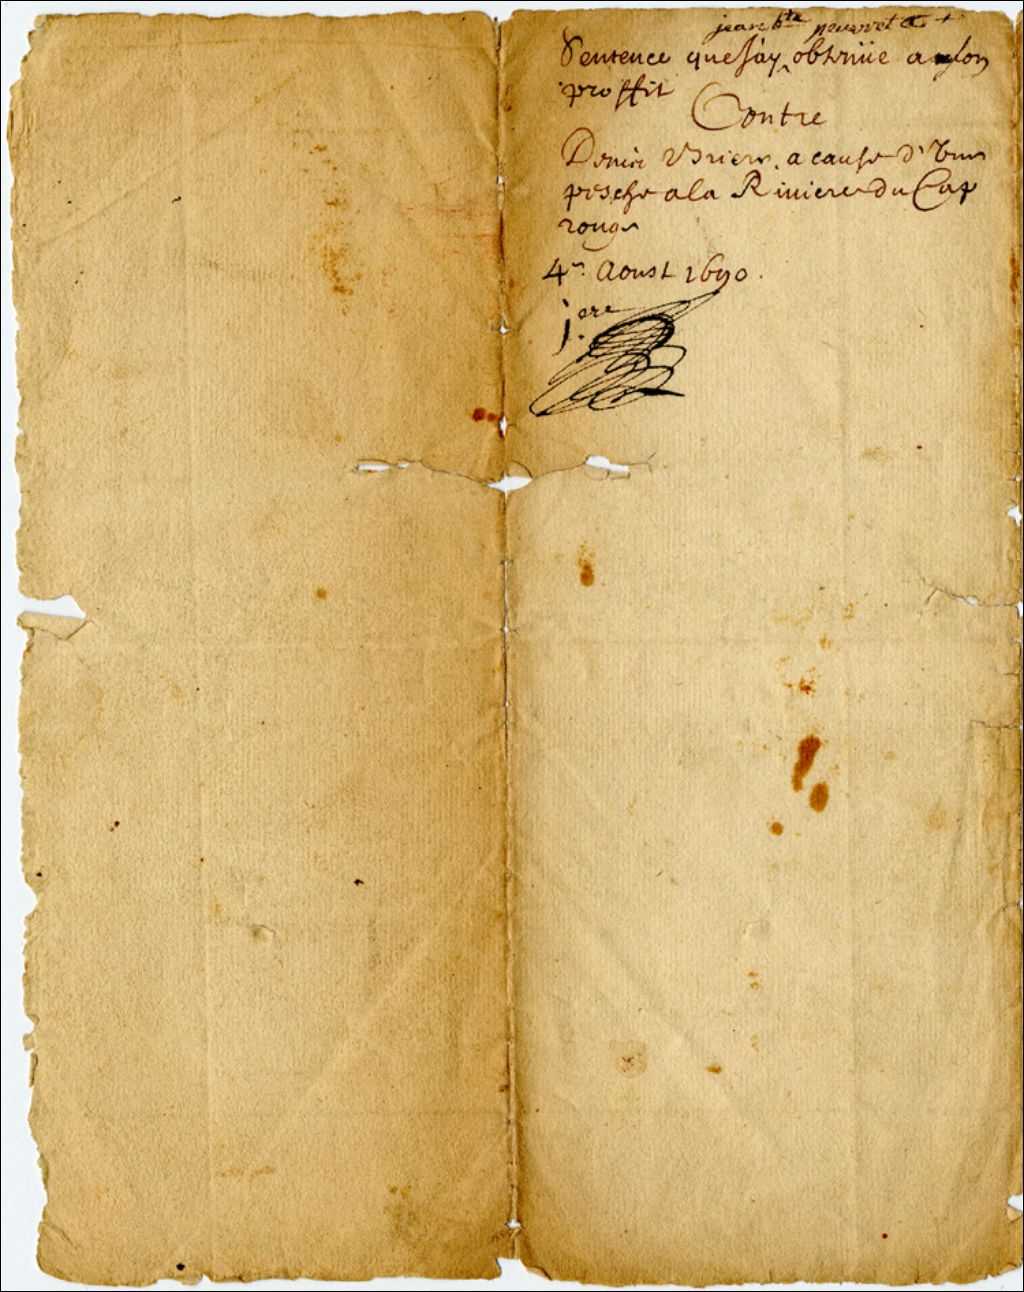 jean bte peuvret
Sentence que Jay obtenüe a son
proffit
Contre
Denis Briere a cause d'vne
pesche a la Riuiere du Cap
rouge
4e. Aoust 1690.
j.ere